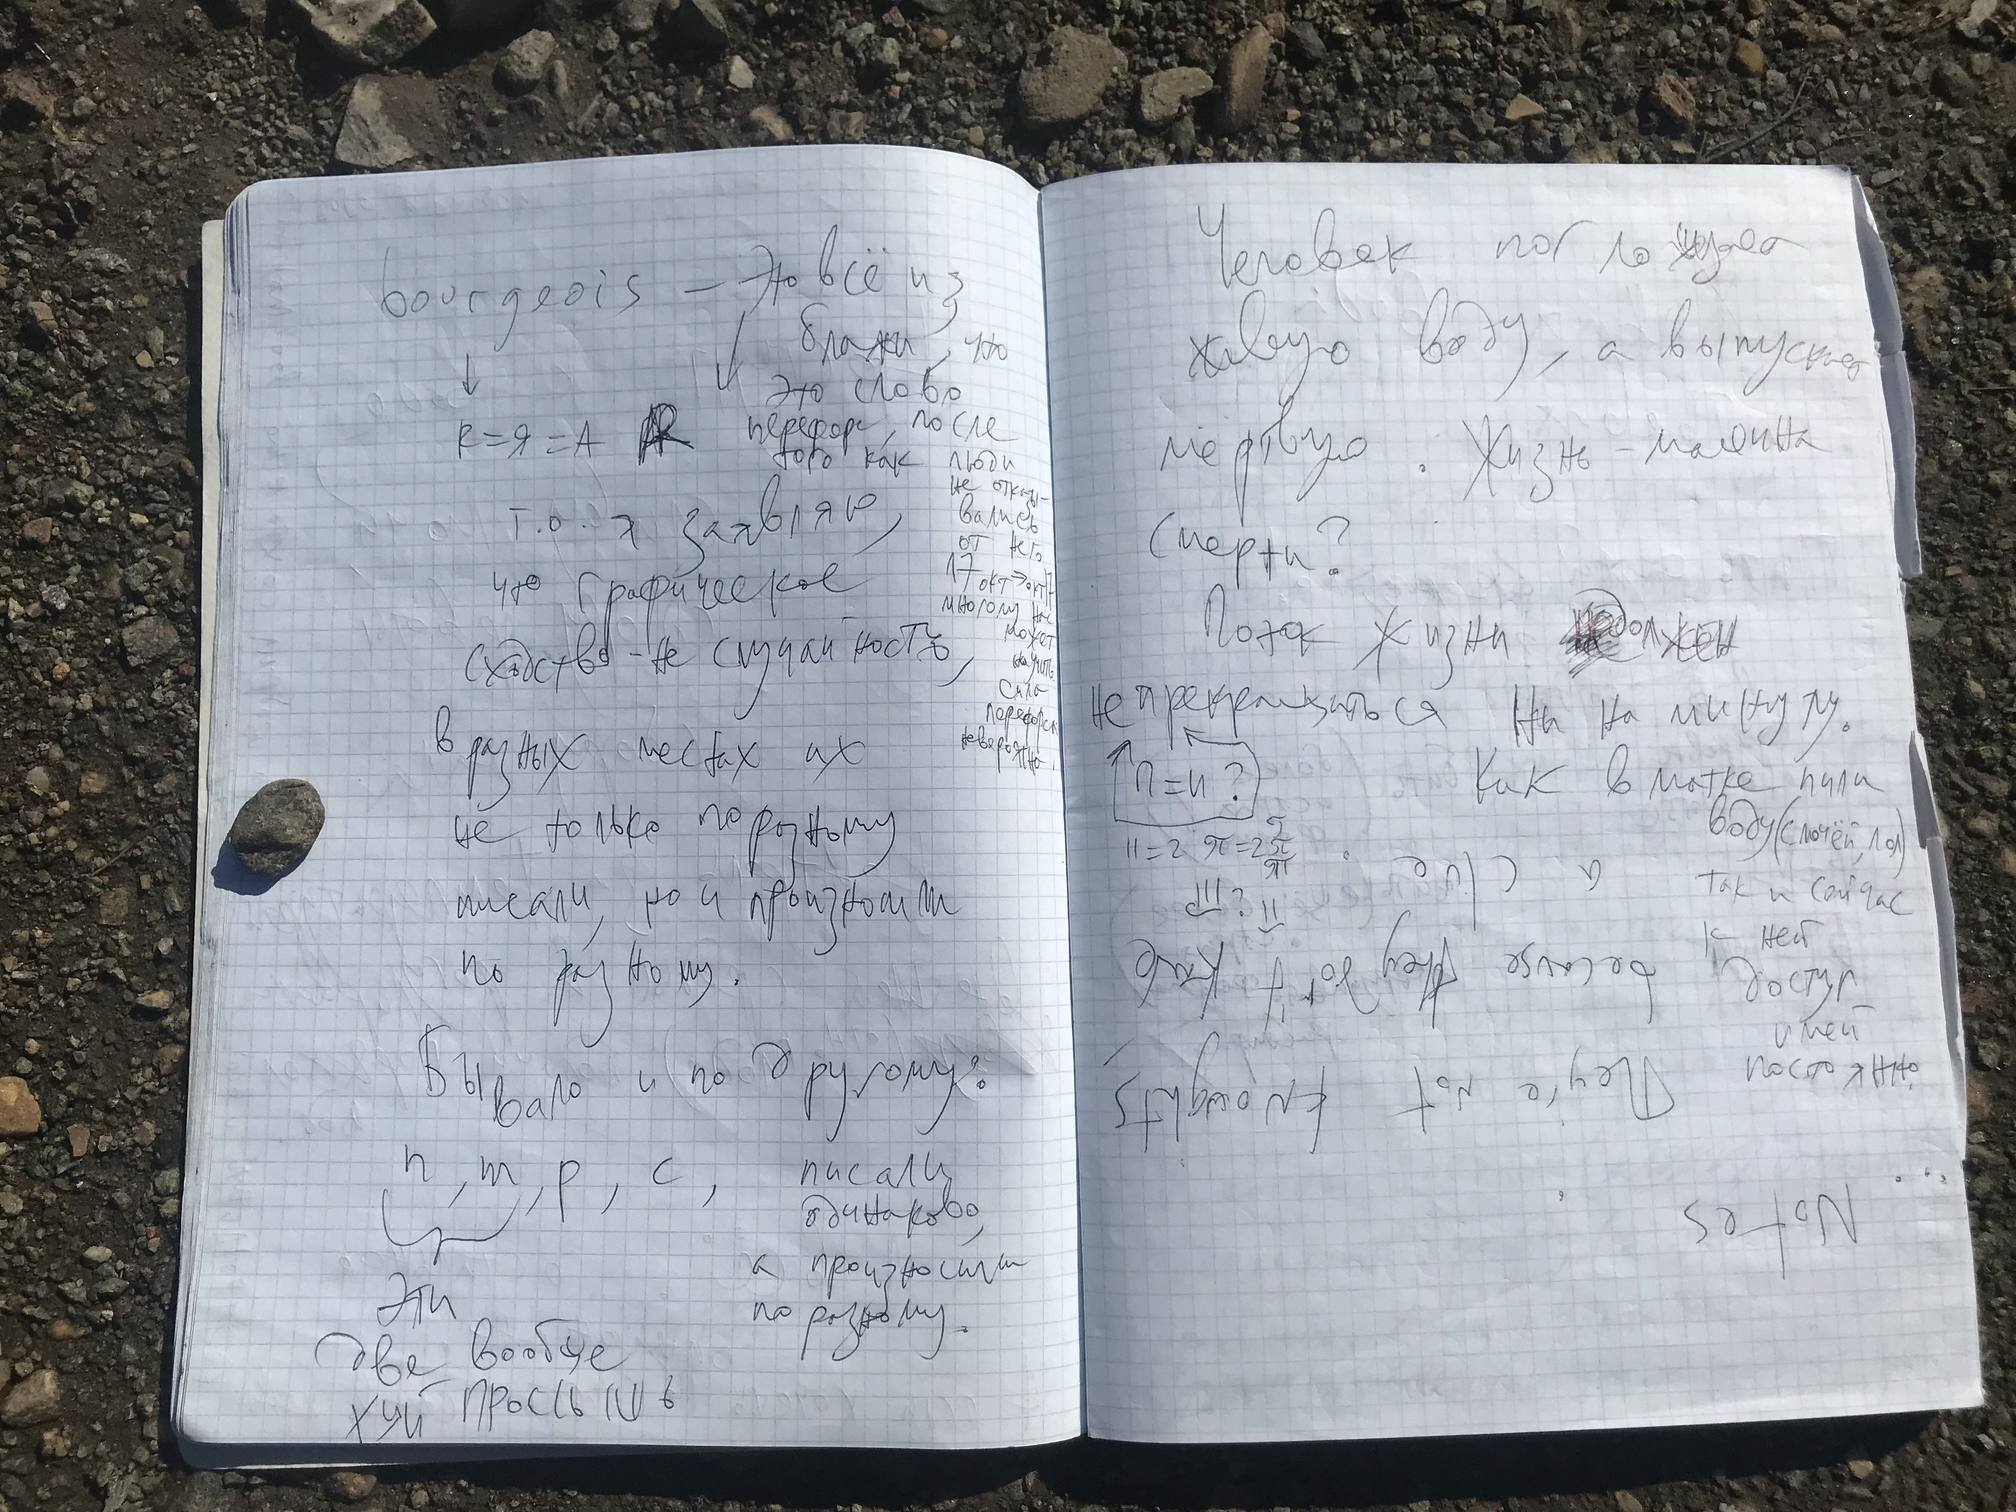 bourgeois – это всё из
блажи, что
это слово
перефорс, после
того как люди
не отказы-
вались
от него
17 окт → окт 17
многому нас
может
научить.
Сила
перефорса
невероятна.
↓
R = Я = A
т.о. я заявляю,
что графическое
сходство - не случайность,
в разных местах их
не только по разному
писали, но и произносили
по разному.
Бывало и по другому:
п, т, р, с, писали
одинаково,
а произносили
по разному.
Эти
две вообще
хуй проссышь
Человек поглощает
живую воду, а выпускает
мёртвую. Жизнь - машина
смерти?
Поток жизни должен
не прекращаться ни на минуту.
п = и ?
Как в матке пили
воду (с мочёй, лол)
так и сейчас
к ней
доступ
имей
постоянно.
11 = 2
Notes
They're not knowghts
because they don't know
a clue.